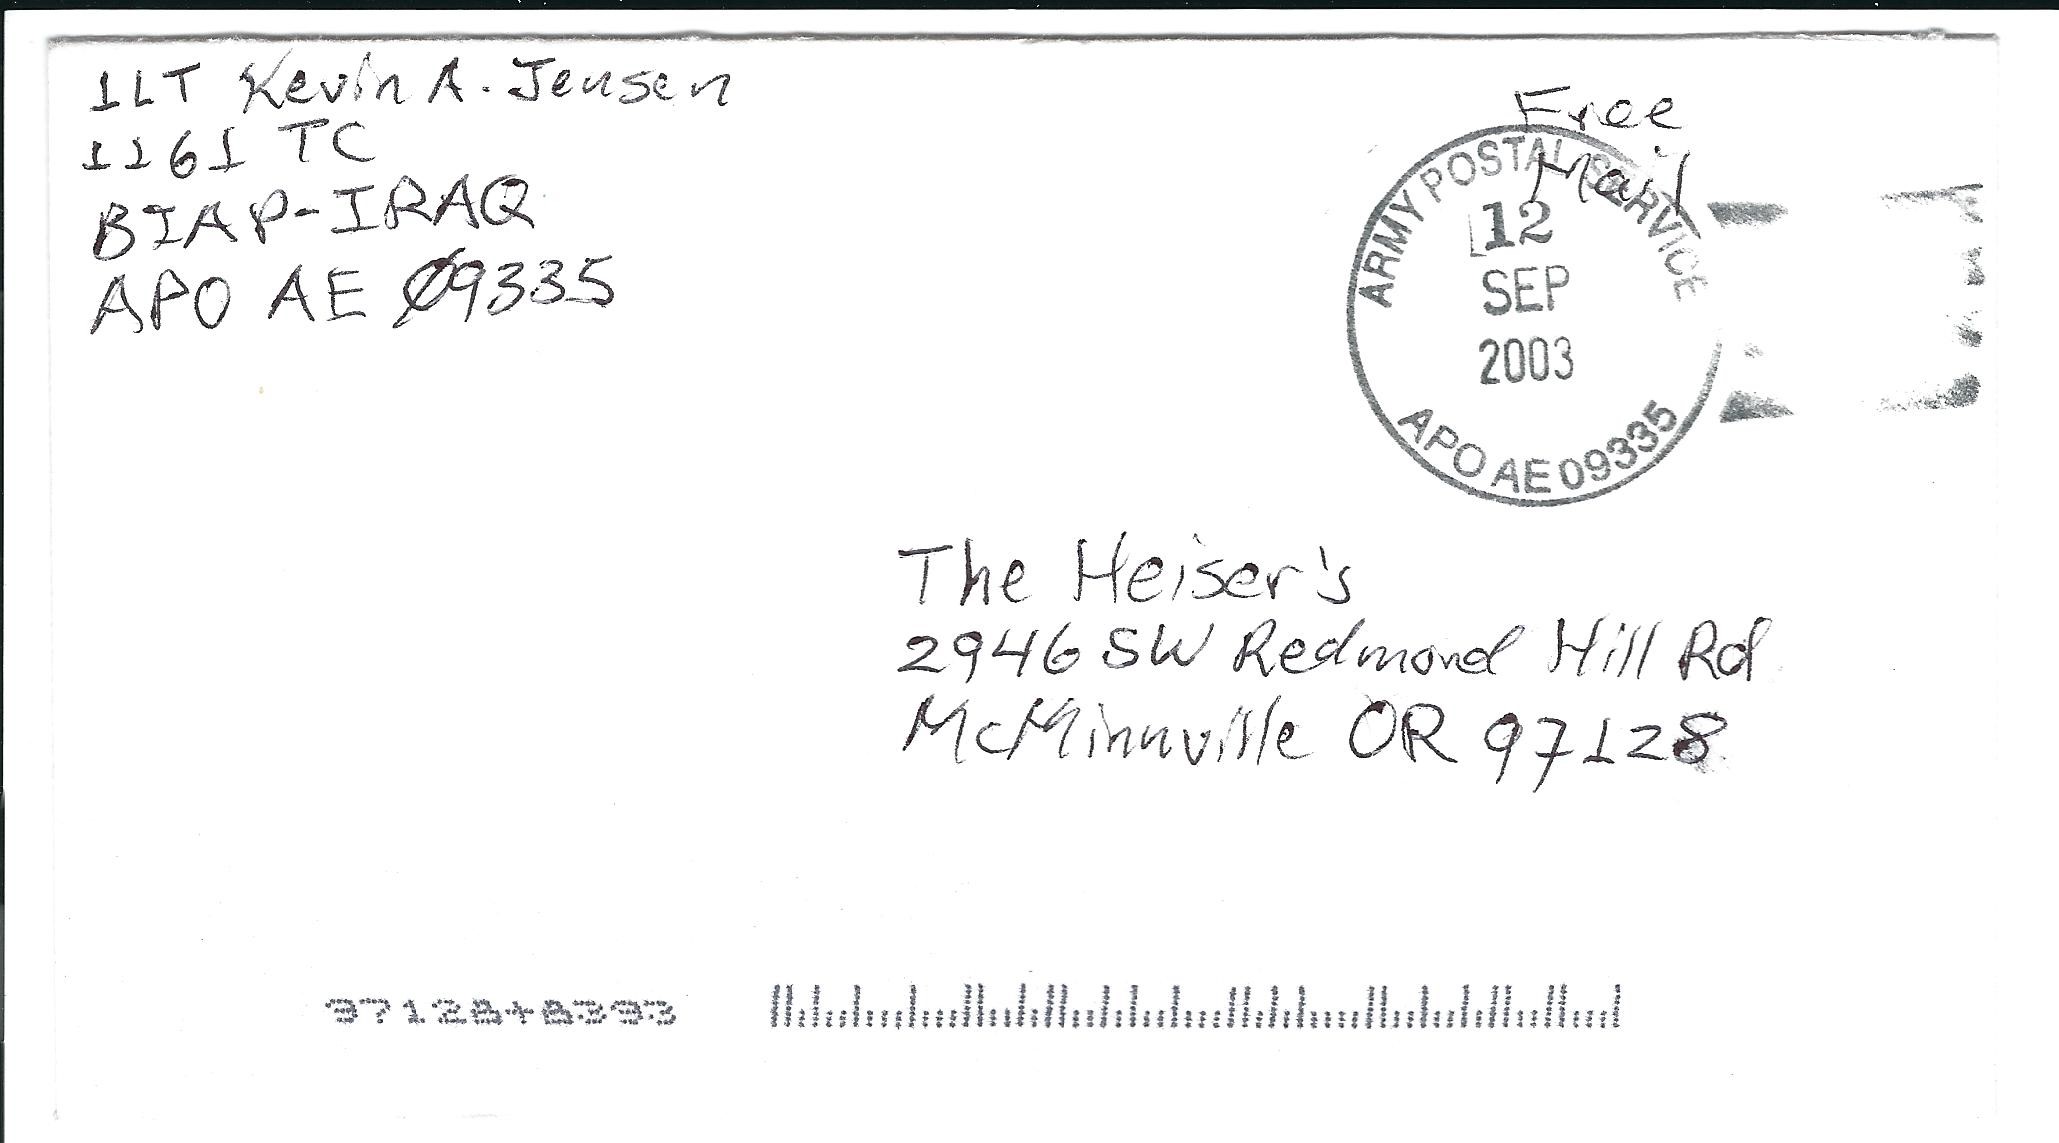 1LT Kevin A. Jensen
1161 TC
BIAP-IRAQ
APO AE 09335
Free
Mail
ARMY POSTAL SERVICE
12
SEP
2003
APO AE 09335
The Heiser's
2946 SW Redmond Hill Rd
McMinnville OR 97128
97128+8393